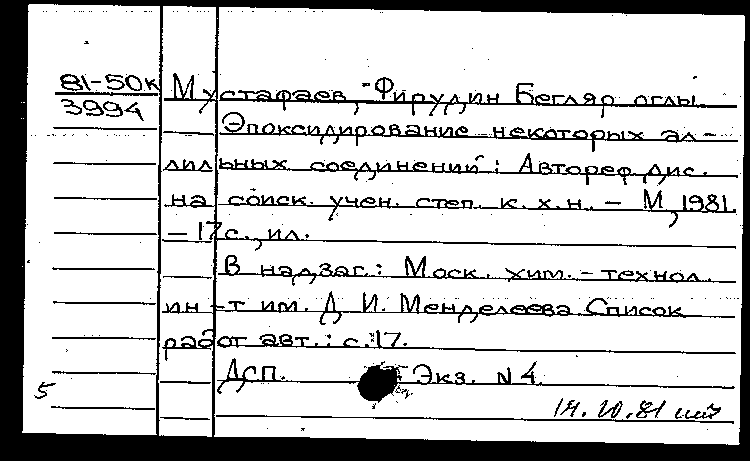 81-50к Мустафаев, Фирудин Бегляр оглы.
3994
Эпоксидирование некоторых ал-
лильных соединений: Автореф. дис.
на соиск. учен. степ. к. х. н. – М, 1981.
– 17 с., ил.
В надзаг.: Моск. хим.-технол.
ин-т им. Д. И. Менделеева. Список
работ авт.: с. 17.
Дсп. Экз. N 4.
5
14.10.81